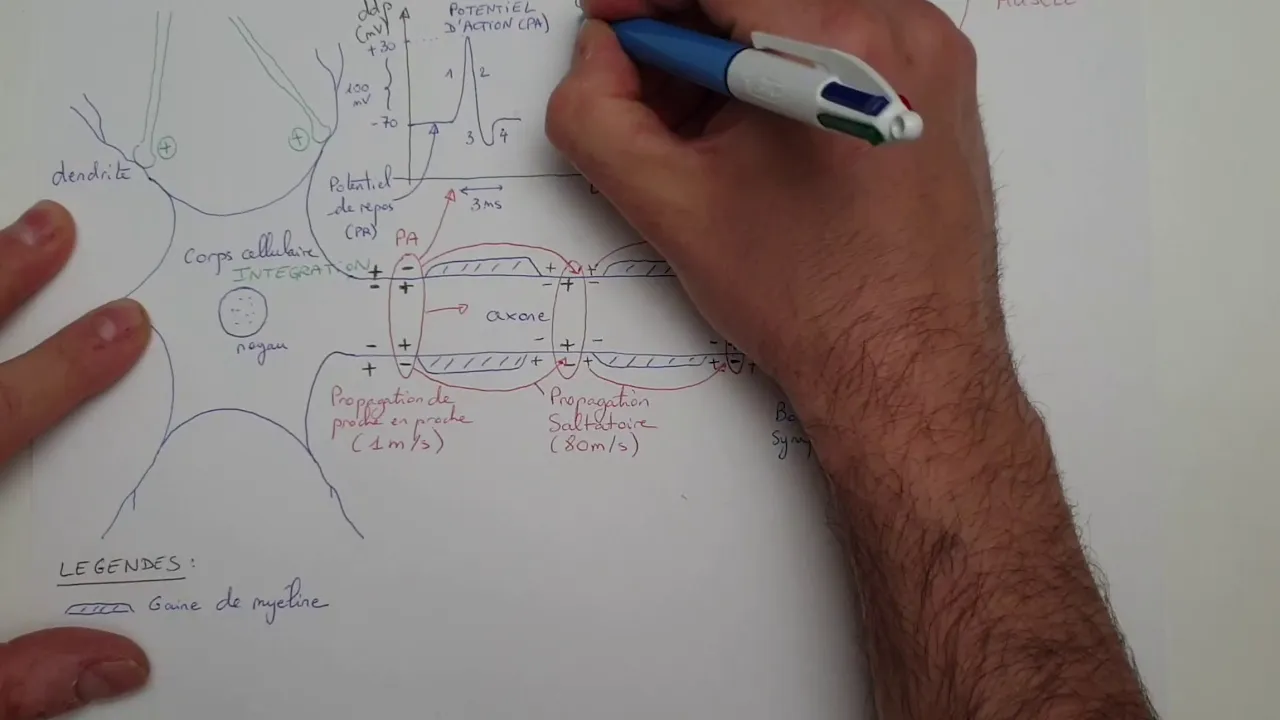 ddp
(mV)
POTENTIEL
D'ACTION (PA)
MUSCLE
+30
1
2
100
mV
-70
3
4
+
+
dendrite
Potentiel
de repos
(PR)
3 ms
PA
Corps cellulaire
INTEGRATION
+ - + +
- + - + -
noyau
axone
- + - + - -
+ - + - + + - +
Propagation de
proche en proche
(1 m/s)
Propagation
Saltatoire
(80 m/s)
LEGENDES :
Gaine de myéline